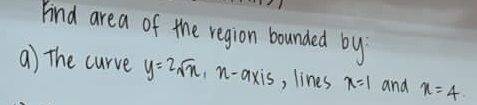 Find area of the region bounded by:
a) The curve y=2√x, x-axis, lines x=1 and x=4.